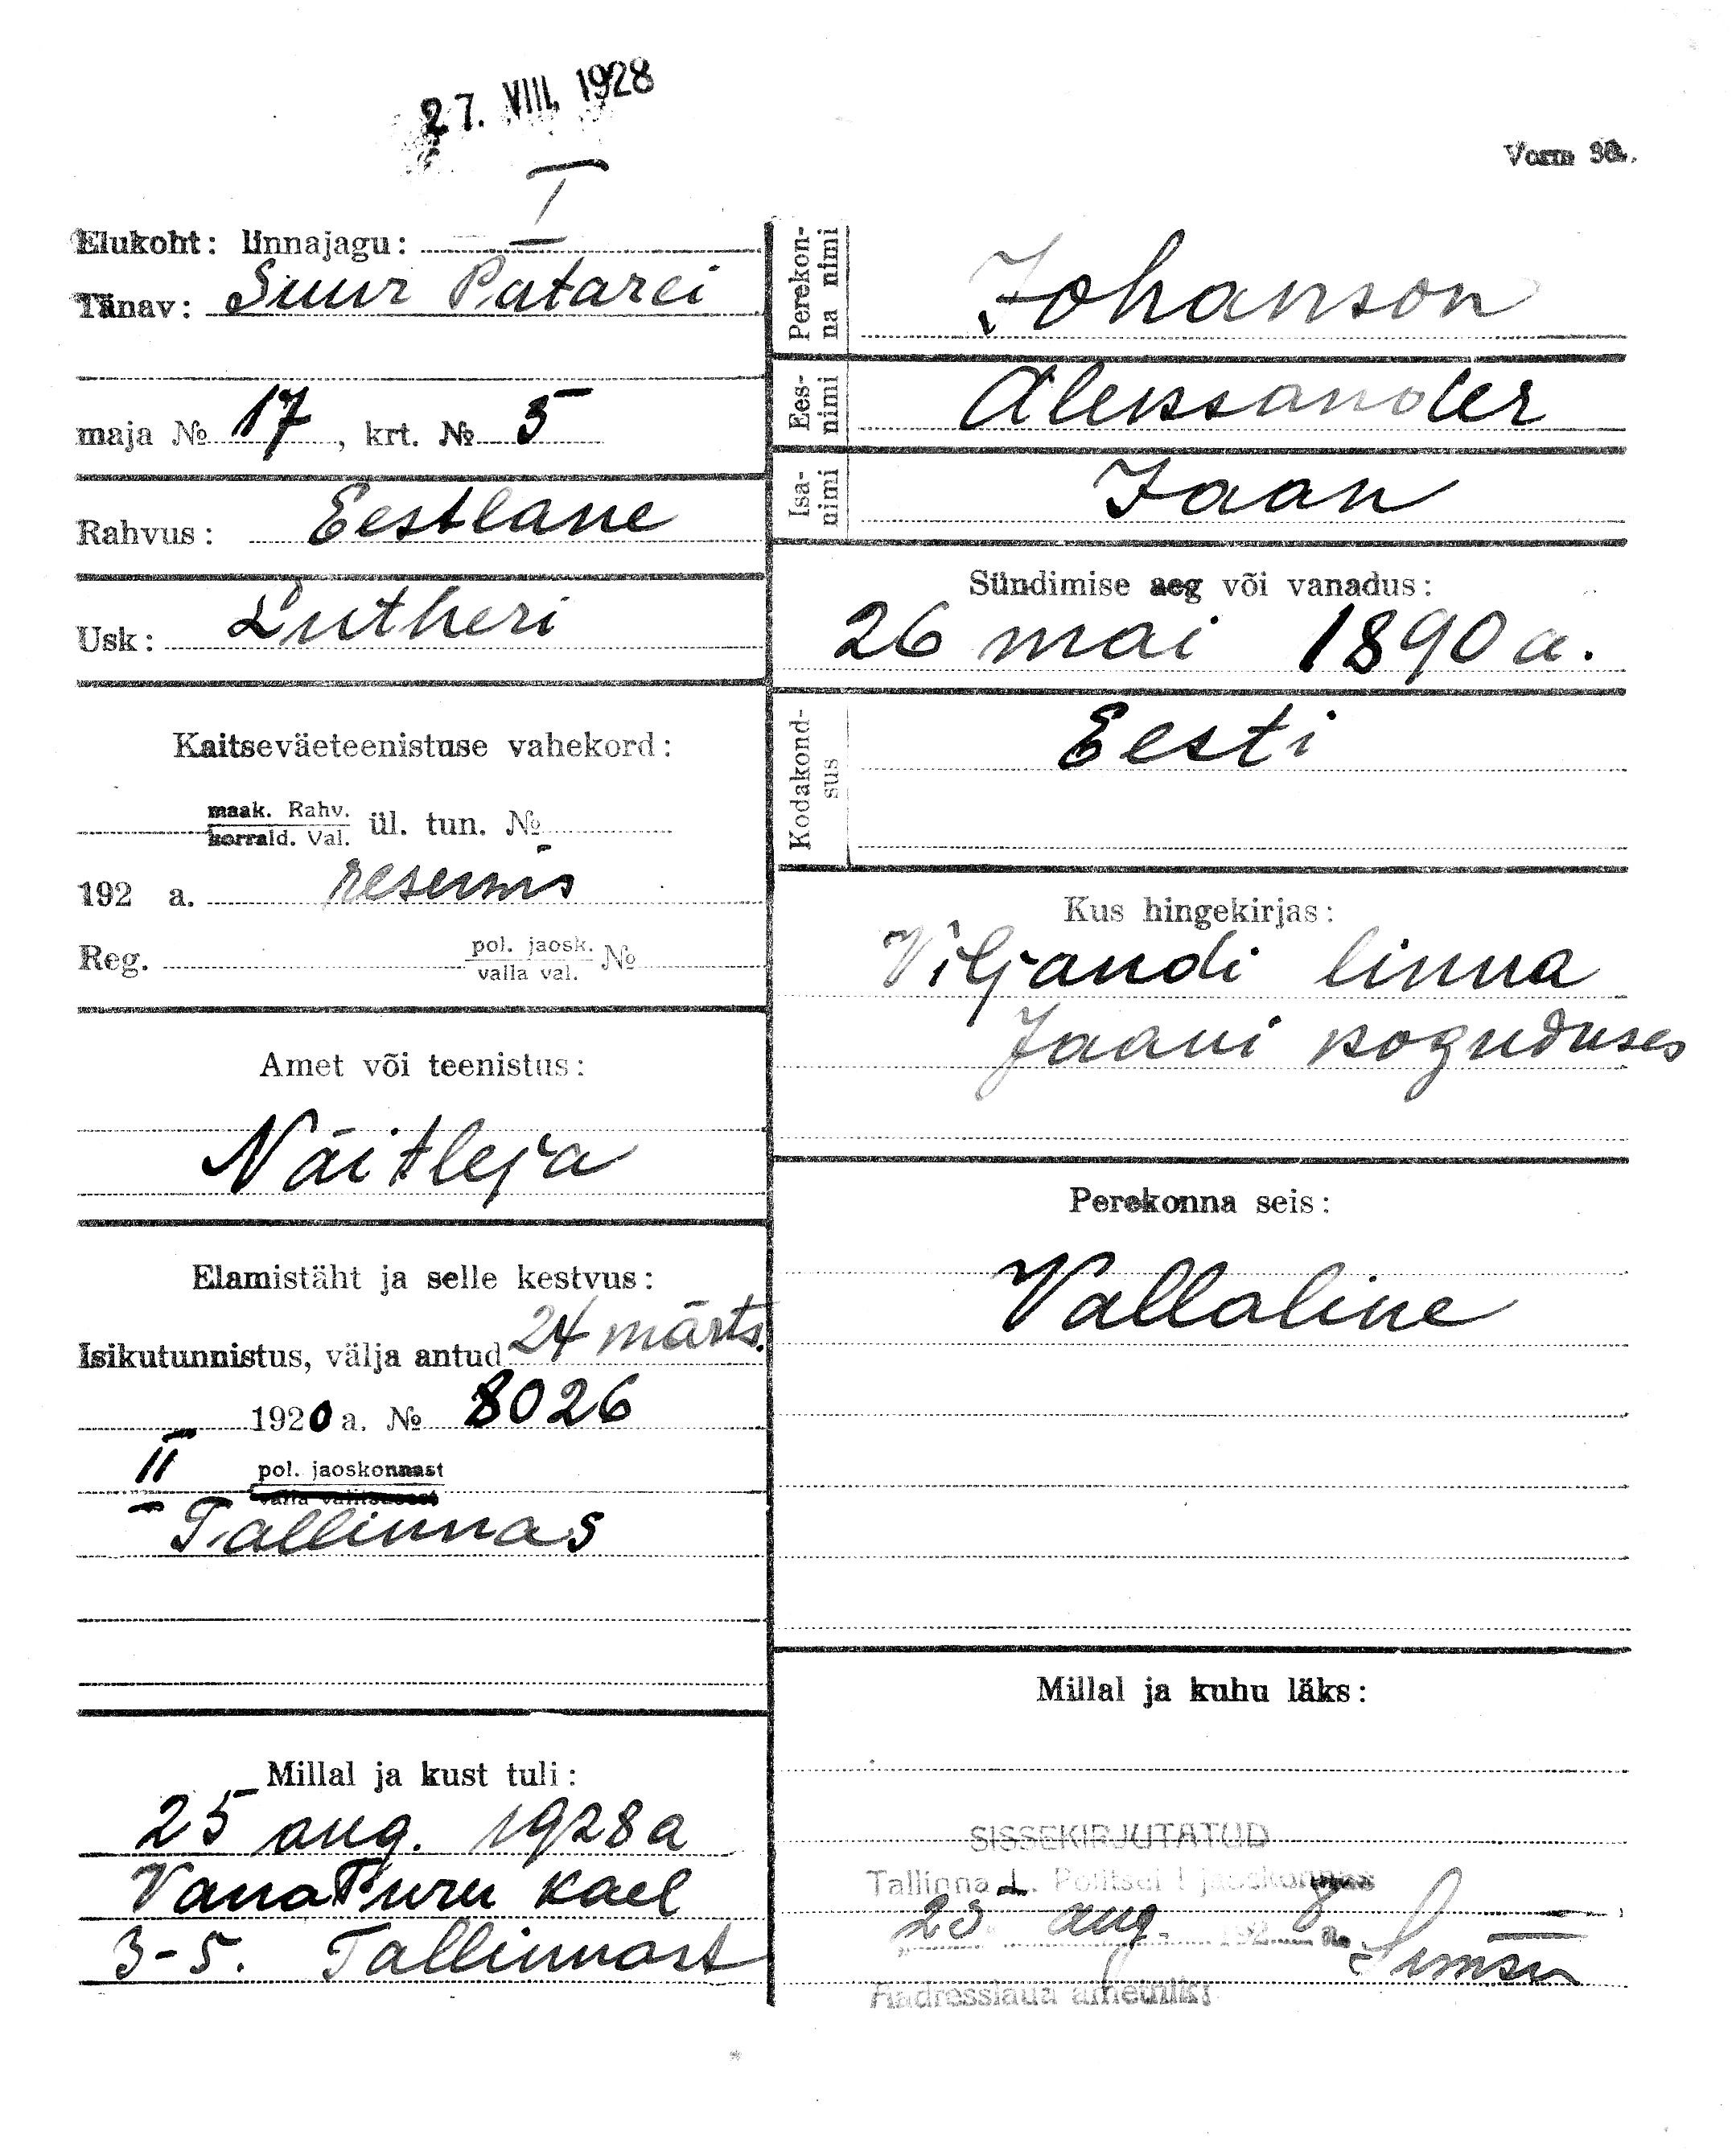 27. VIII. 1928
Vorm
I
Elukoht: linnajagu:
Tänav: Suur Patarei
maja № 17, krt. № 5
Rahvus: Eestlane
Usk: Lutheri
Kaitseväeteenistuse vahekord:
maak. Rahv.
korrald. Val. ül. tun. №
192 a. reservis
Reg. pol. jaosk. №
valla val.
Amet või teenistus:
Näitleja
Elamistäht ja selle kestvus:
Isikutunnistus, välja antud 24 märts.
1920 a. № 8026
II pol. jaoskonnast
valla valitsusest
Tallinnas
Millal ja kust tuli:
25 aug. 1928 a
Vana Turu kael
3-5. Tallinnast
Perekon-
na nimi
Johanson
Ees-
nimi
Aleksander
Isa-
nimi
Jaan
Sündimise aeg või vanadus:
26 mai 1890 a.
Kodakond-
sus
Eesti
Kus hingekirjas:
Viljandi linna
Jaani koguduses
Perekonna seis:
Vallaline
Millal ja kuhu läks:
SISSEKIRJUTATUD
Tallinna L. Politsei I jaoskonnas
25 aug. 1928 a.
Aadresslaua ametnik: